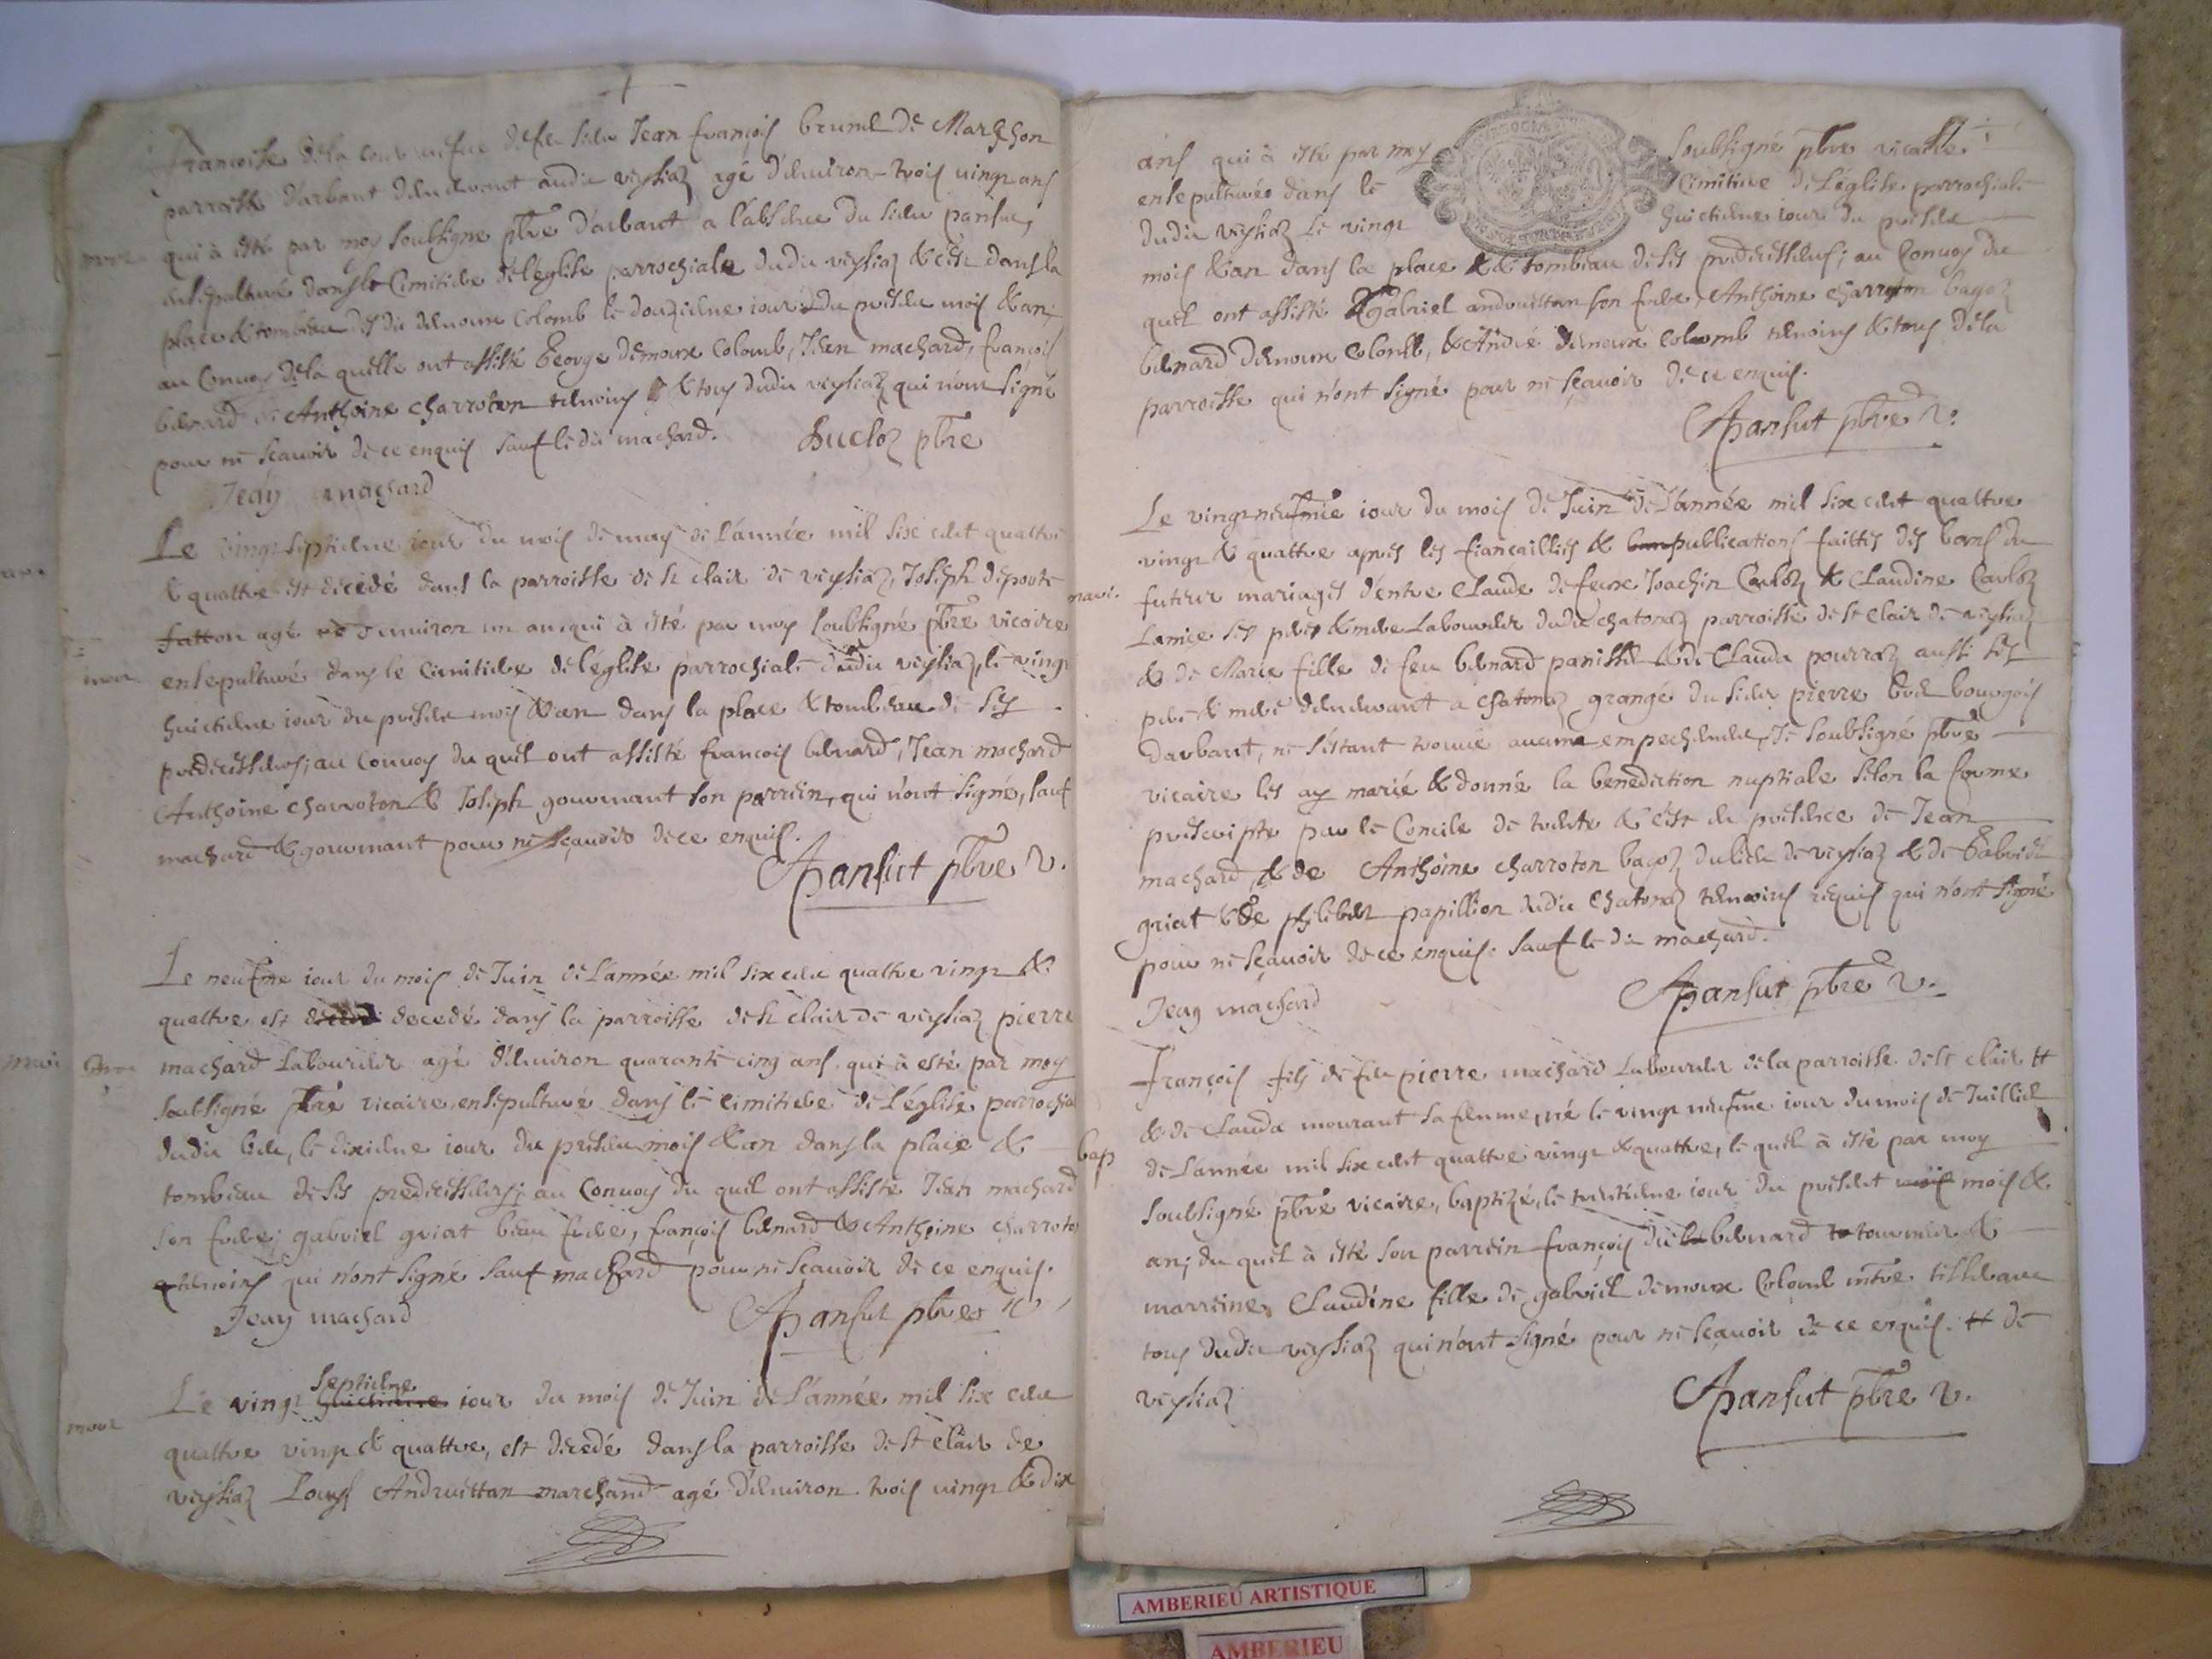 Francoise de la cour vefue de feu sieur Jean françois brunel de Marchon
parroisse d'arbant demeurant audit veysiaz agé d'enuiron trois uingt ans
mor qui à esté par moy soubsigné pbre d'arbant a l'absence du sieur pansut,
ensepulturé dans le Cimitiere de l'eglise parrochiale dudit veysiaz & c'est dans la
place & tombeau des dit demoure Colomb le douzieme iour du present mois & an;
au Conuoy de la quelle ont assisté George demoure Colomb, Jean machard, françois
benard & Anthoine charroton temoins & tous dudit veysiaz qui n'ont signé
pour ne scauoir de ce enquis sauf le dit machard. Ducloz pbre
Jean machard
Le vingt septieme iour du mois de may de l'année mil six cent quattre
& quattre est decedé dans la parroisse de st clair de veysiaz, Joseph deponte
fatton agé d'enuiron un an qui à esté par moy soubsigné pbre vicaire
mor ensepulturé dans le Cimitiere de l'église parrochiale dudit veysiaz, le vingt
huictieme iour du present mois & an dans la place & tombeau de ses
predecesseurs; au Conuoy du quel ont assisté francois benard, Jean machard
Anthoine charroton & Joseph gourmant son parrein, qui n'ont signé, sauf
machard & gourmant pour ne sçauoir de ce enquis.
Pansut pbre v.
Le neufme iour du mois de Juin de l'année mil six cent quattre vingt &
quattre est decedé dans la parroisse de st clair de veysiaz pierre
machard Laboureur agé d'enuiron quarante cinq ans qui à esté par moy
soubsigné pbre vicaire ensepulturé dans le cimitiere de l'église parrochia
dudit lieu, le dixieme iour du present mois & an dans la place &
tombeau de ses predecesseurs; au Conuoy du quel ont assisté Jean machard
son frere; gabriel griat beau frere, françois benard & Anthoine charroto
temoins qui n'ont signé sauf machard pour ne sçauoir de ce enquis.
Jean machard Pansut pbre v
septieme
mor Le vingt huictieme iour du mois de Juin de l'année mil six cent
quattre vingt & quattre, est decedé dans la parroisse de st clair de
veysiaz Louys Andruettan marchand agé d'enuiron trois uingt & dix
ans qui à esté par moy soubsigné pbre vicaire
ensepulturéo dans le Cimitiere de L'église parrochiale
dudit veysiaz le vingt huictieme iour du present
mois & an dans la place & tombeau de ses predecesseurs; au Conuoy du
quel ont assisté Gabriel andruettan son frere, Anthoine charroton bagoz
benard demoure Colomb, & André demoure Colomb temoins & tous de la
parroisse qui n'ont signé pour ne sçauoir de ce enquis.
Pansut pbre v.
Le vingt neufme iour du mois de Juin de l'année mil six cent quattre
vingt & quattre apres les fiancailles & ban publications faittes des bans du
mari. futeur mariages d'entre Claude de feux Joachin Carloz & Claudine Carloz
Lamiee ses pere & mere Laboureur dudit chatonaz parroisse de st Clair de veysiaz
& de Marie fille de feu benard panissel & de Clauda pourraz aussi ses
pere & mere demeurant a chatonaz grangé du sieur pierre bret bourgois
d'arbant, ne s'estant trouué aucune empechement, Je soubsigné pbre
vicaire les ay marié & donné la benediction nuptiale selon la forme
prescripte par le Concile de trente & c'est en presence de Jean
machard & de Anthoine charroton bagoz dulieu de veysiaz & de Gabriel
griat & de philibert papillion dudit Chatonaz temoins requis qui n'ont signé
pour ne sçauoir de ce enquis. sauf le dit machard.
Jean machard Pansut pbre v.
François fils de feu pierre machard Laboureur de la parroisse de st clair #
& de Clauda mourant sa femme, né le vingt neufme iour du mois de Juilliet
bap de l'année mil six cent quattre vingt & quattre, le quel à esté par moy
soubsigné pbre vicaire, baptizé, le trentieme iour du present mois &
an; du quel à esté son parrein françois benard tourneur &
marreine, Claudine fille de gabriel demoure Colomb mtre tisseran
tous dudit veysiaz qui n'ont signé pour ne sçauoir de ce enquis. # de
veysiaz
Pansut pbre v.
AMBERIEU ARTISTIQUE
AMBERIEU